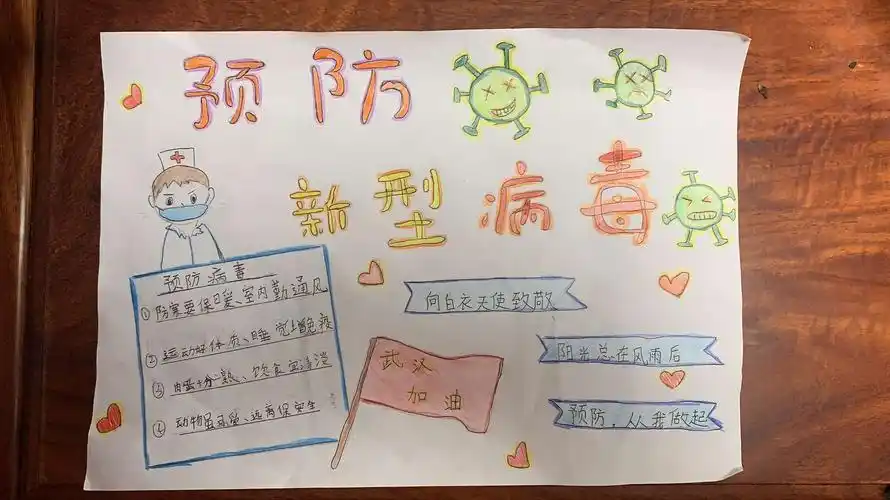 预防
新型病毒
预防病毒
①防寒要保暖、室内勤通风
②运动好体质、睡觉增免疫
③肉蛋十分熟、饮食宜清淡
④动物虽可爱、远离保安生
向白衣天使致敬
阳光总在风雨后
预防，从我做起
武汉
加油